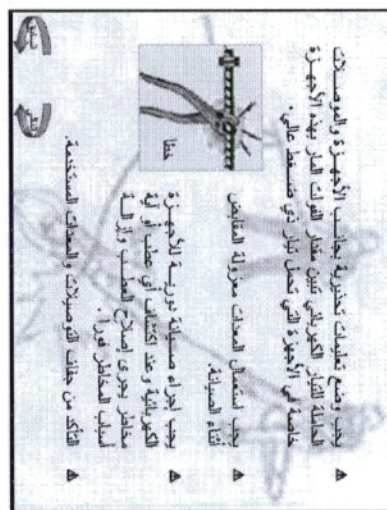 يجب وضع تعليمات تحذيرية بجانب الأجهزة والموصلات
الحاملة للتيار الكهربائي تبين مقدار الفولت المار بهذه الأجهزة
خاصة في الأجهزة التي تحمل تيار ذي ضغط عالي.
يجب استعمال المعدات معزولة المقابض
أثناء الصيانة.
خطأ
يجب إجراء صيانة دورية للأجهزة
الكهربائية وعند اكتشاف أي عطب أو أية
مخاطر يجرى إصلاح العطب وإزالة
أسباب المخاطر فوراً.
التأكد من جفاف التوصيلات والمعدات المستخدمة.